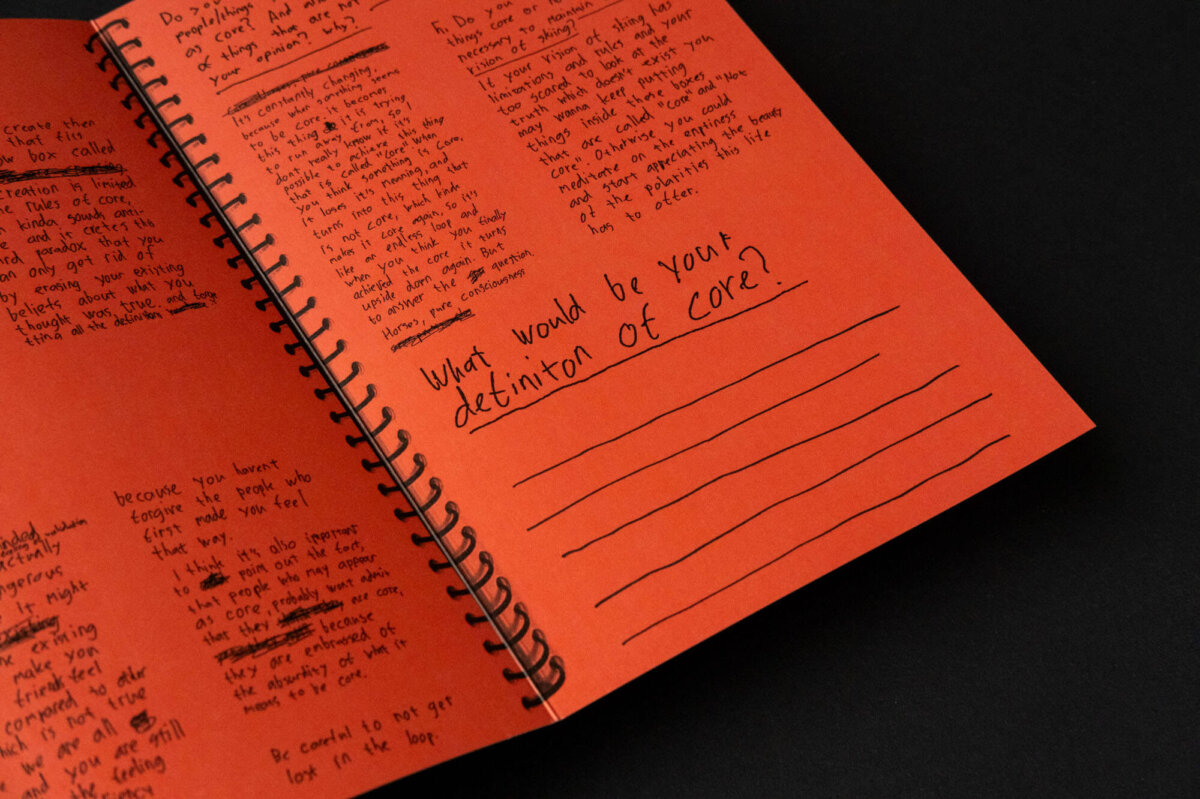 create then
that fits
box called
creation is limited
rules of core,
kinda sounds anti-
and is cretes this
paradox that you
an only get rid of
by erasing your existing
beliefs about what you
thought was true. and
tting all the definition
actually
angerous
It might
existing
make you
friends feel
compared to other
which is not true
we are all
and you are still
the feeling
because you havent
forgive the people who
first made you feel
that way.
I think it's also important
to poim out the fact,
that people who may appear
as core, probably wont admit
that they are core,
because
they are embrased of
the absurdity of what it
means to be core.
Be careful to not get
lost in the loop.
Do you
people/things
as core? And
of things that are not
your opinion? why?
It's constantly changing,
because when something seems
to be core, it becomes
this thing it is trying
to run away from. So I
dont really know if it's
possible to achieve this thing
that is called "core". When
you think something is core,
it loses it's meaning, and
turns into this thing that
is not core, which kinda
makes it core again, so it's
like an endless loop and
when you think you finally
achieved the core it turns
upside down again. But
to answer the question
Horses, pure consciousness
Fi, Do you
things core or
necessary to maintain
vision of skiing?
If your vision of skiing has
limitations and rules and your
too scared to look at the
truth which doesn't exist you
may wanna keep putting
things inside these boxes
that are called "core" and "Not
core". Otherwise you could
meditate on the emptiness
and start appreciating the beauty
of the polarities this life
has to offer.
What would be your
definiton of core?